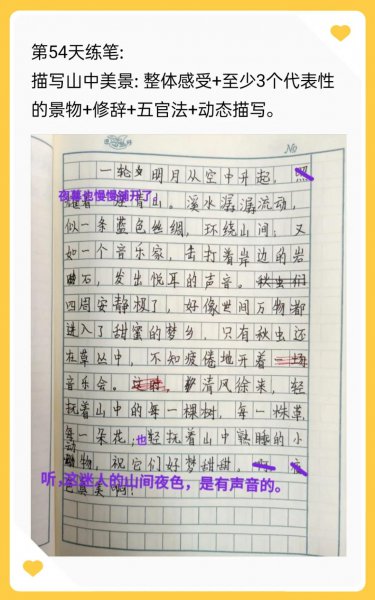 第54天练笔:
描写山中美景: 整体感受+至少3个代表性
的景物+修辞+五官法+动态描写。
No
一轮明月从空中升起，照
夜幕也慢慢铺开了
耀着一座青山。溪水潺潺流动，
似一条蓝色丝绸，环绕山间；又
如一个音乐家，击打着岸边的岩
石，发出悦耳的声音。秋虫们
四周安静极了，好像世间万物都
进入了甜蜜的梦乡，只有秋虫还
在草丛中，不知疲倦地开着一场
音乐会。这时，清风徐来，轻
抚着山中的每一棵树，每一株草
每一朵花，也轻抚着山中熟睡的小
动物，祝它们好梦甜甜。
听，这迷人的山间夜色，是有声音的。